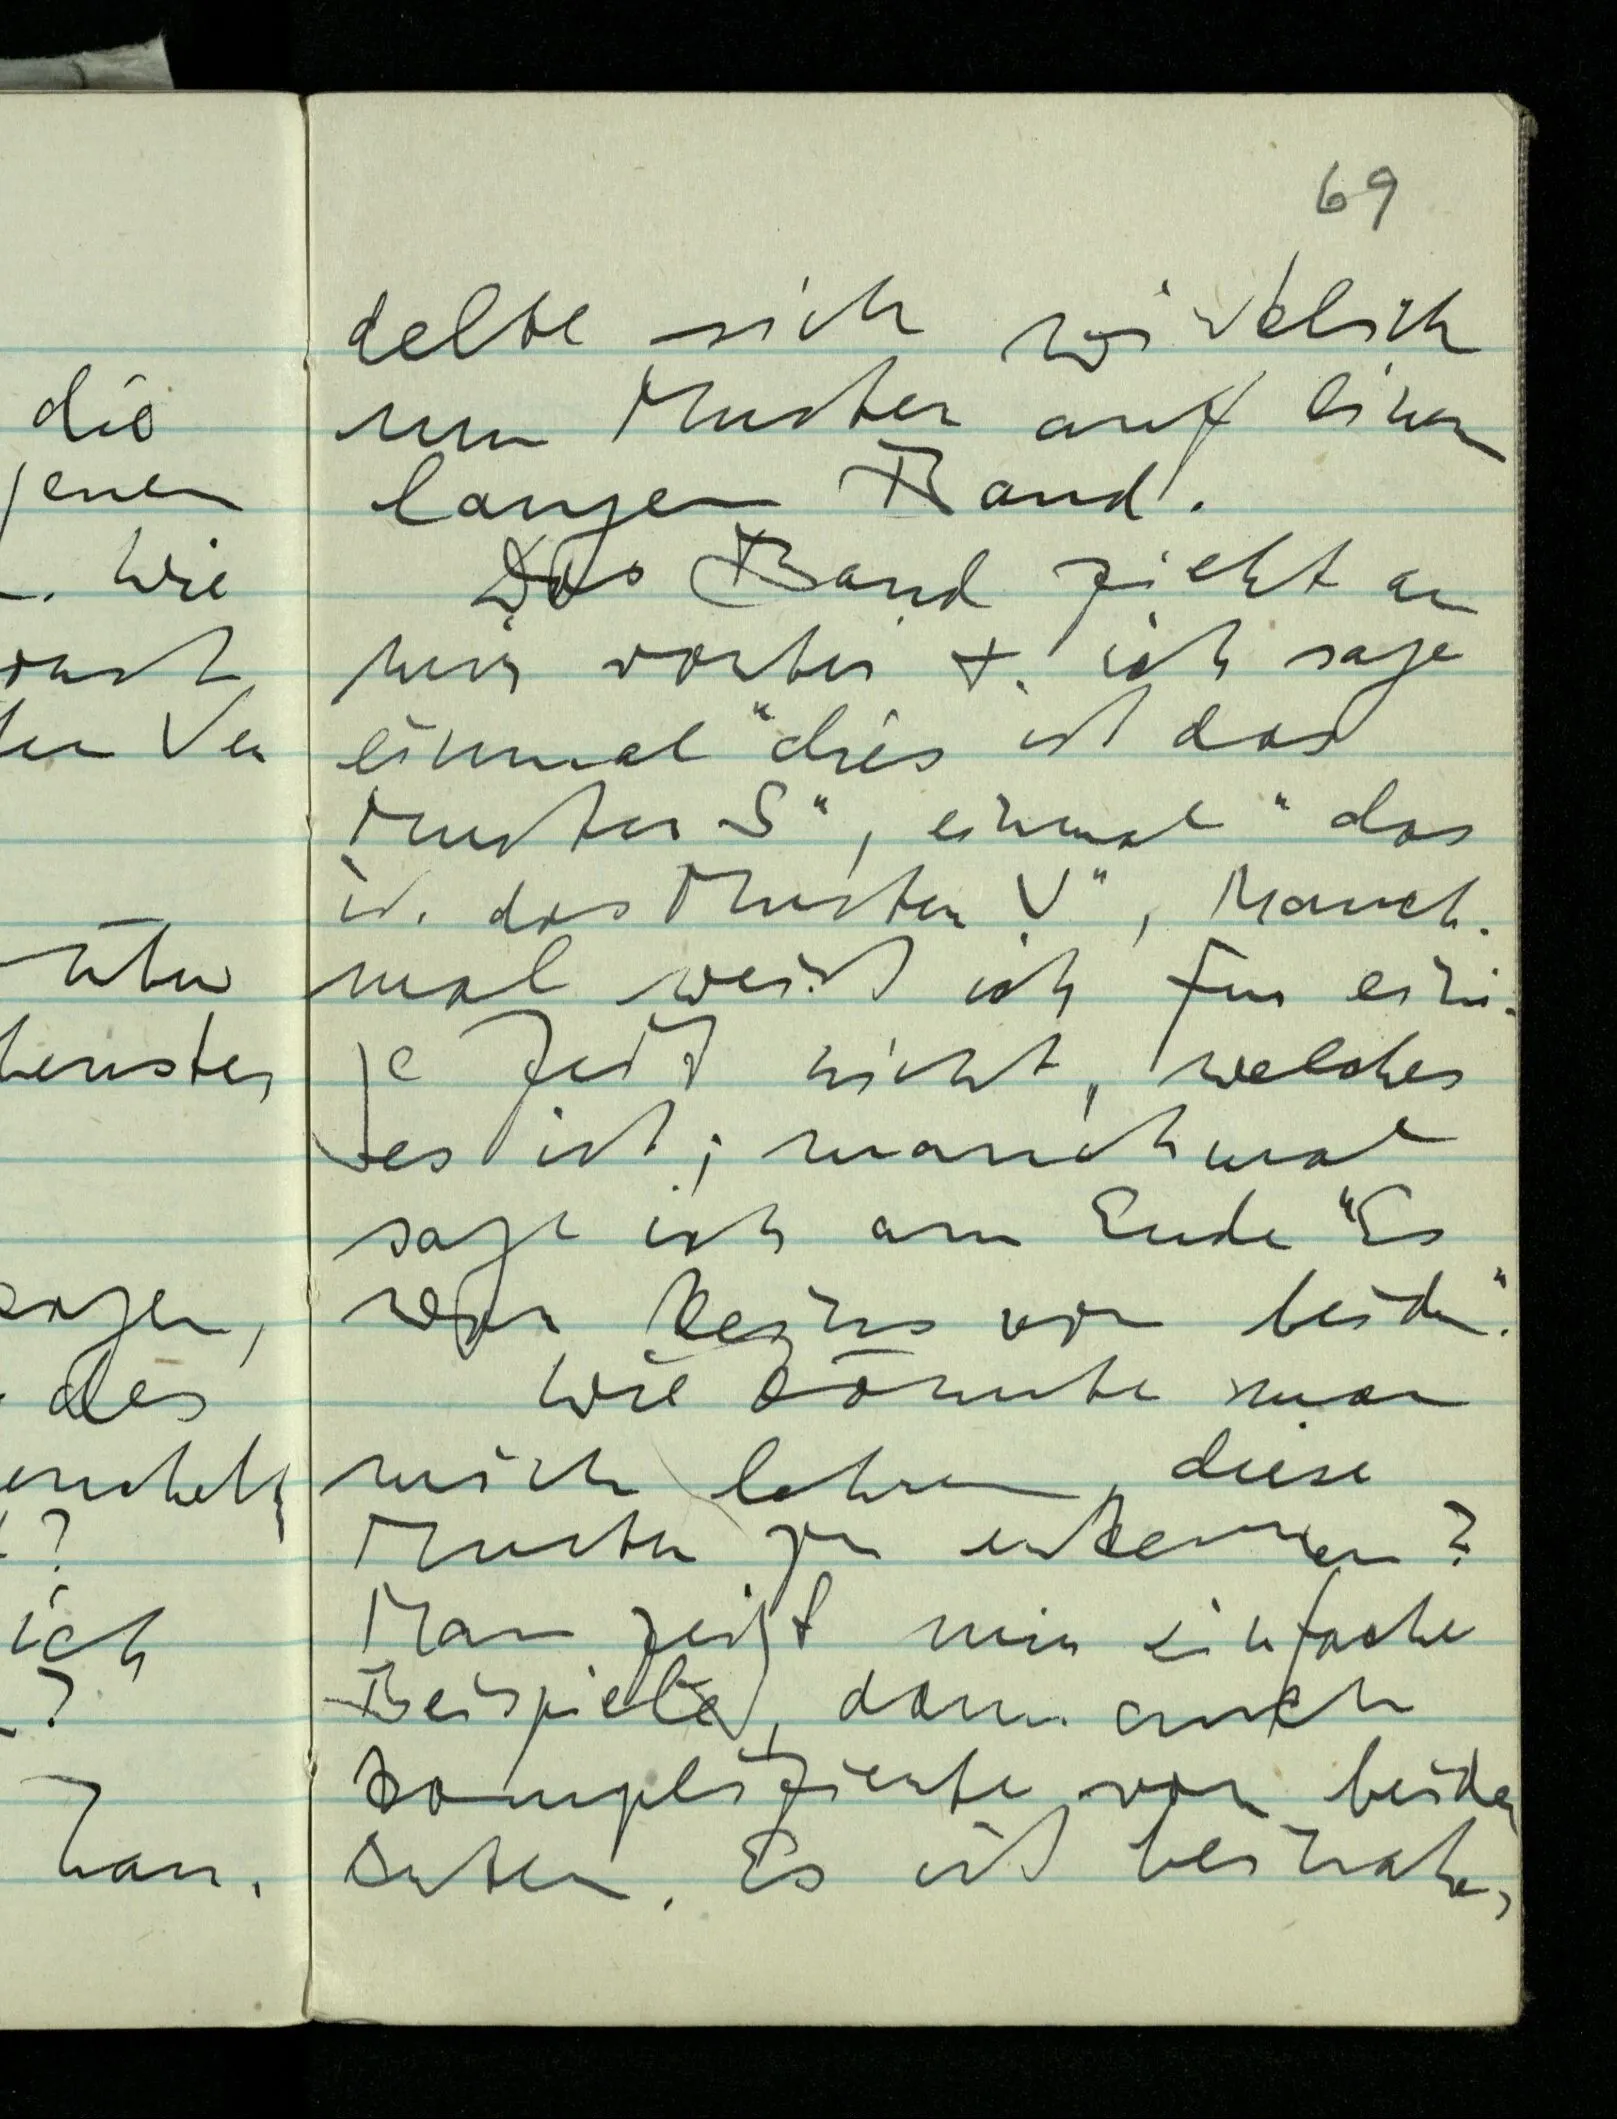 69
delte sich wirklich
um Muster auf einem
langen Band.
Das Band zieht an
mir vorbei &. ich sage
einmal “dies ist das
Muster S”, einmal “das
ist das Muster V”, Manch-
mal weiß ich für eini-
ge Zeit nicht, welches
es ist; manchmal
sage ich am Ende “Es
war keins von beiden”.
Wie könnte man
mich lehren, diese
Muster zu erkennen?
Man zeigt mir einfache
Beispiele, dann auch
komplizierte von beiden
Arten. Es ist beinahe,
die
jenen
. Wie
Ver
sagen,
des
?
ich
?
han.